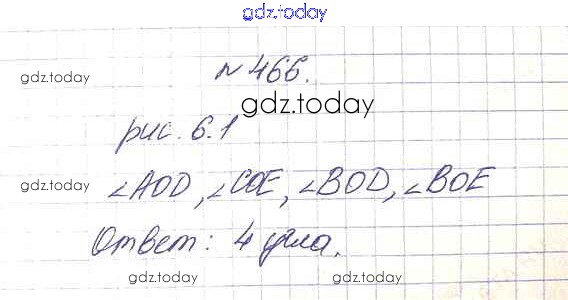 gdz.today
gdz.today
N 466.
gdz.today
рис. 6.1
gdz.today
∠AOD, ∠COE, ∠BOD, ∠BOE
Ответ: 4 угла.
gdz.today gdz.today